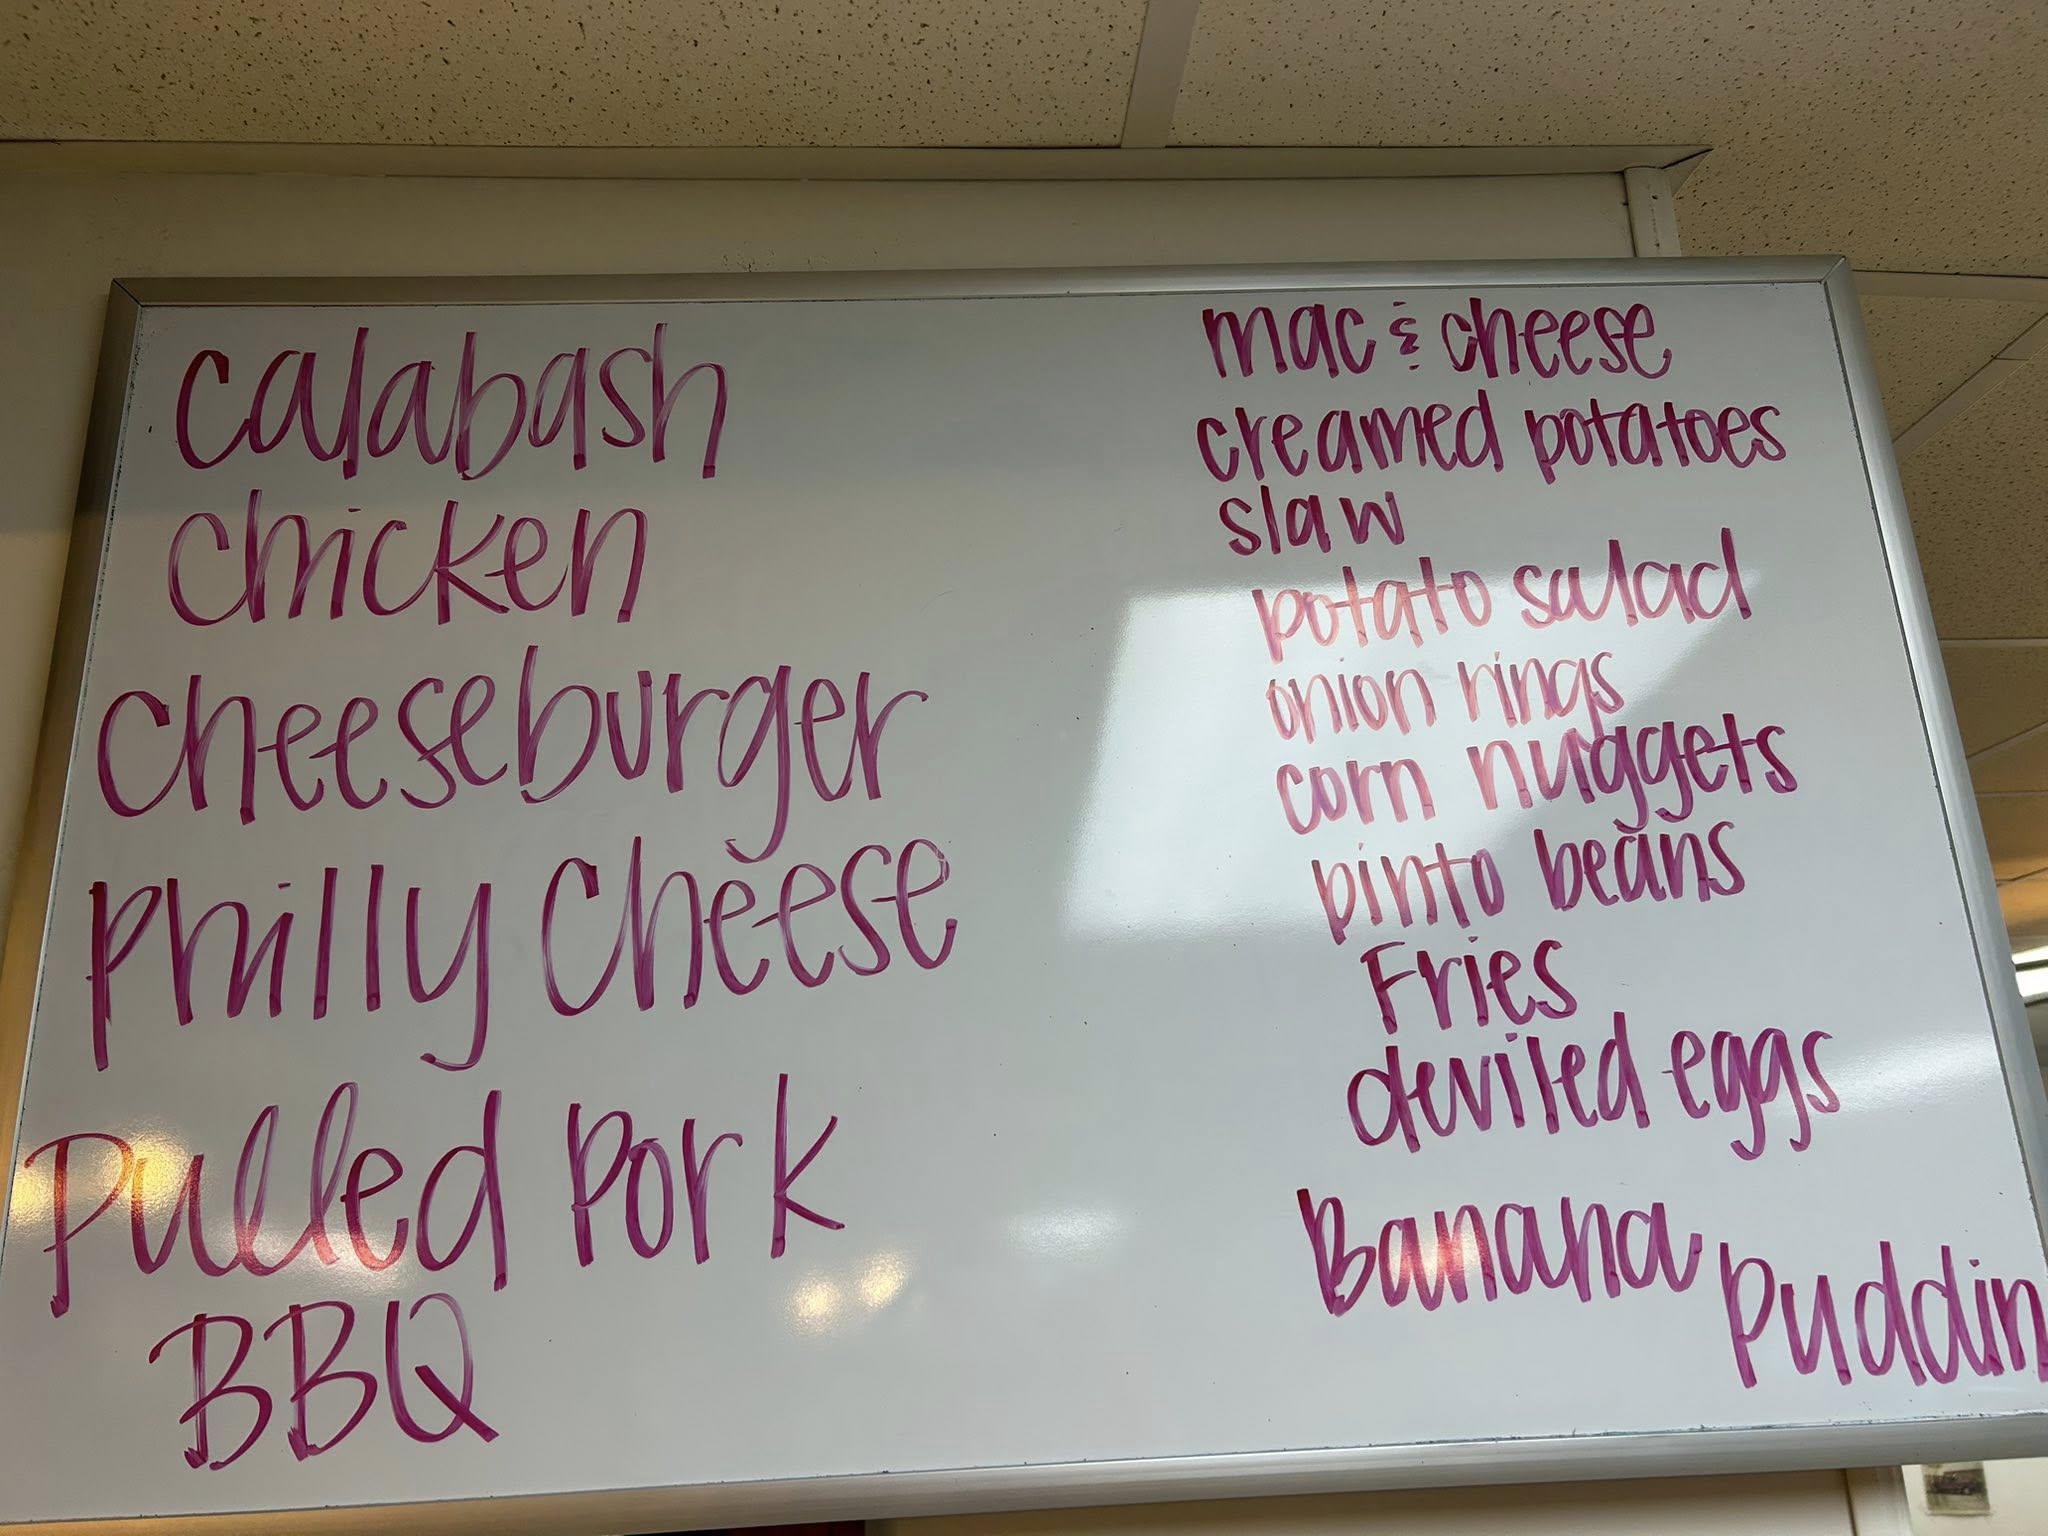 Calabash
Chicken
Cheeseburger
Philly Cheese
Pulled Pork
BBQ
mac & cheese
creamed potatoes
slaw
potato salad
onion rings
corn nuggets
pinto beans
Fries
deviled eggs
Banana
Puddin